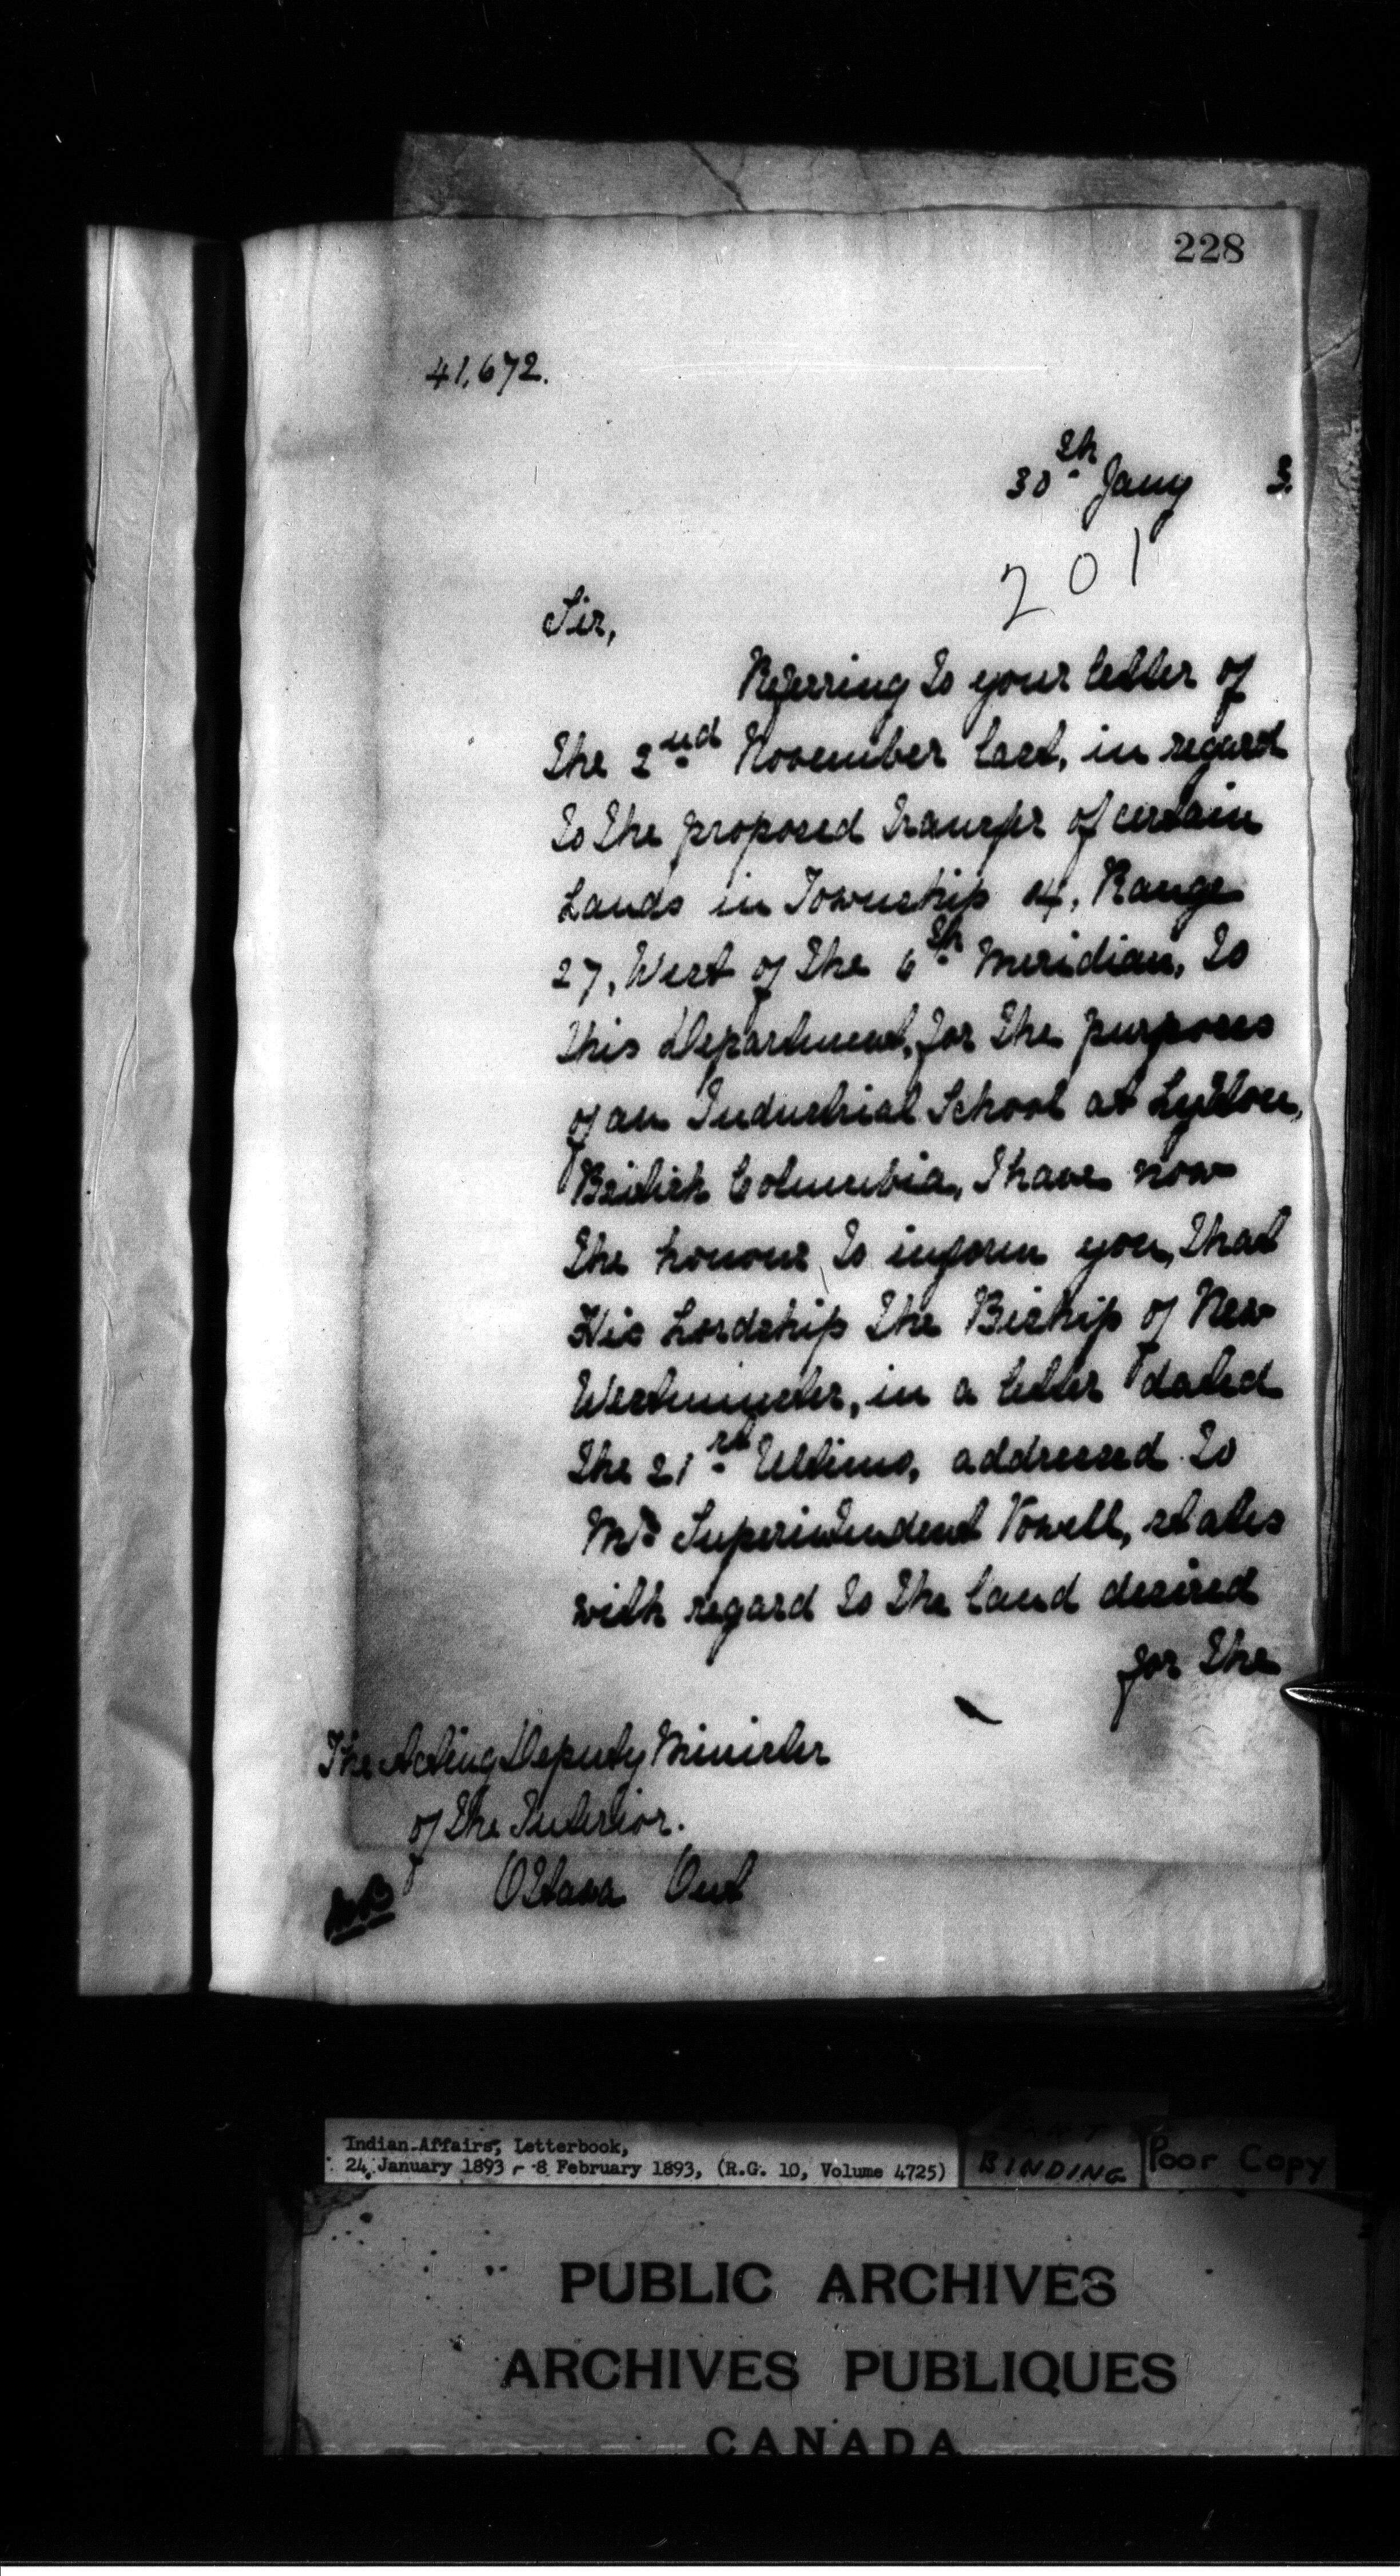 228
41,672.
30th Jany 3.
201
Sir,
Referring to your letter of
the 2nd November last, in regard
to the proposed transfer of certain
Lands in Township 14, Range
27, West of the 6th Meridian, to
this Department, for the purposes
of an Industrial School at Lytton,
British Columbia, I have now
the honour to inform you, that
His Lordship the Bishop of New
Westminster, in a letter dated
the 21st Ultimo, addressed to
Mr Superintendent Vowell, states
with regard to the land desired
for the
The Acting Deputy Minister
of the Interior.
Ottawa Ont
Indian Affairs, Letterbook,
24 January 1893 - 8 February 1893, (R.G. 10, Volume 4725)
BINDING
Poor Copy
PUBLIC ARCHIVES
ARCHIVES PUBLIQUES
CANADA